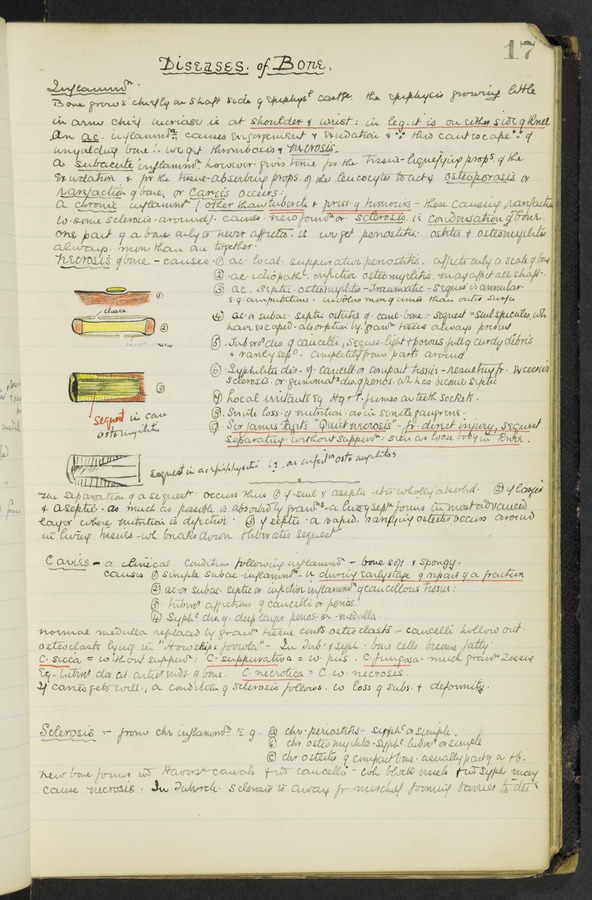 17
Diseases. of Bone.
Inflammn.
Bone grows chiefly on shaft side of epiphysl cartge. the epiphysis growing little
in arm chief increase is at shoulder & wrist: in leg. it is on either side of Knee
An ac. inflammn causes Engorgement & Exudation & ∵ this cant escape ∵ of
unyielding bone ∴ we get thrombosis & necrosis.
a subacute inflammn however gives time for the tissue-liquefying props of the
Exudation & for the tissue-absorbing props. of the leucocytes to act & osteoporosis or
rarefaction of bone, or Caries occurs;
a chronic inflammn (other than tubercle & press of tumours - these causing rarefaction
wo some sclerosis around). causes new formn or sclerosis. ie condensation of bone.
one part of a bone only is never affected. ie we get periostitis. osteitis & osteomyelitis
always. more than one together.
Necrosis of bone - causes. ① ac. local. suppurative periostitis. affects only a scale of bone
② ac. idiopathc. infective osteomyelitis. may affect all shaft.
③ ac. septic osteomyelitis - Traumatic - Seques is annular.
E.g. amputations. involves more of inner than outer surface
④ ac. or subac. septic osteitis of canc. bone. - sequest = small spicules, wh
have escaped absorption by grann tissue always present
⑤ Tubers dis of cancelli, Seques. light & porous full of curdy debris
& rarely sepd. completely from parts around
⑥ Syphilitic dis. of cancells or compact tissue - resulting fr. excessive
sclerosis or gummats dis of perios. wh has become septic
⑦ Local irritants Eg. Hg & P. fumes on teeth sockets.
⑧ Senile loss of nutrition. as in senile gangrene.
⑨ Sir James Pagets "Quiet necrosis" - fr. direct injury, Sequest
separating without suppurn. - seen as loose body in Knee.
cloaca
①
②
③
Sequest in case
osteomyelitis
Sequest in ac epiphysitis i.e. ac infectn osteomyelitis
The Separation of a sequest. occurs thus ① if small & aseptic its wholly absorbd. ② if larger
& aseptic. as much as possible is absorbd by granns - a line of sepn forms in most advanced
layer where nutrition is defective. ③ if septic. a rapid. rarefying osteitis occurs around
in living tissues - wh breaks down & liberates sequest
Caries - a clinical condition following inflammn - bone soft & spongy.
causes ① simple subac. inflammn - in during early stage of repair of a fracture
② ac or subac. septic or infective inflammn of cancellous tissue:
③ tubers affections of cancelli or perios.
④ Syphc dis. of. deep layer perios. or medulla.
normal medulla replaced by grann tissue conts osteoclasts - cancelli hollow out.
osteoclasts lying in "Howships foveola" - In Tub. & syph. bone cells become fatty.
C. Sicca = without suppurn. C. suppurativa = w pus. C. fungosa. much grann Tissue
Eg. tubers dis at artics ends of bone. C. necrotica = C w necrosis.
If caries gets well, a condition of sclerosis follows. w loss of subs. & deformity.
Sclerosis - from chr inflammn E.g. ⓐ chr. periostitis - syphc or simple.
ⓑ chr osteomyelitis - syphc. tubers or simple
ⓒ chr osteitis of compact bone. usually part of a & b.
New bone forms in Haversn canals & in cancelli - wh block vessels & in syph may
cause necrosis. In Tubercle. sclerosis is away fr mischief forming barrier to dis